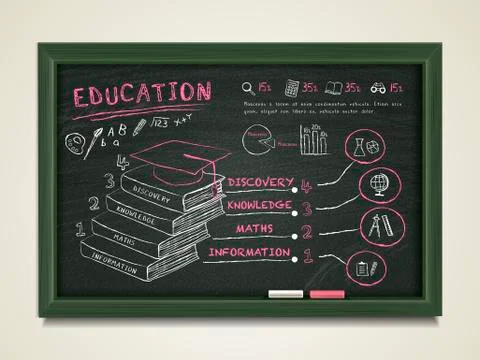 EDUCATION
15% 35% 35% 15%
Maecenas a lorem at enim condimentum vehicula. Vivamus orci enim,
aliquet non, libero ac, vehicula auctor dolor.
AB
ba
√123
x+y
Maecenas
Maecenas
10% 20% 10%
4 DISCOVERY
3 KNOWLEDGE
2 MATHS
1 INFORMATION
DISCOVERY 4
KNOWLEDGE 3
MATHS 2
INFORMATION 1